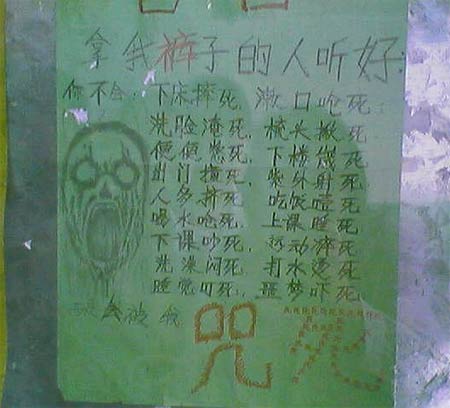 拿我裤子的人听好:
你不会: 下床摔死, 漱口呛死;
洗脸淹死, 梳头揪死
便便憋死, 下楼
出门撞死, 紫外射死
人多挤死, 吃饭噎死
喝水呛死, 上课睡死
下课吵死, 运动猝死
洗澡闷死, 打水烫死
睡觉叮死, 噩梦吓死.
会被我
咒死